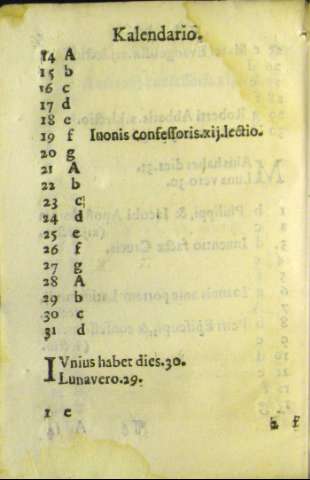 Kalendario.
14 A
15 b
16 c
17 d
18 e
19 f Iuonis confessoris.xij.lectio.
20 g
21 A
22 b
23 c
24 d
25 e
26 f
27 g
28 A
29 b
30 c
31 d
IVnius habet dies.30.
Luna vero.29.
1 e
2 f